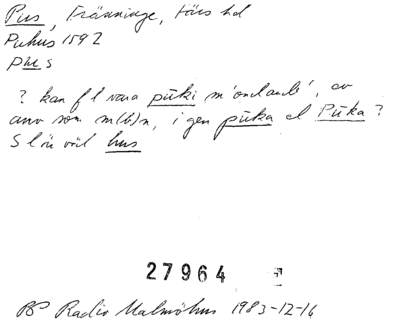 Pus, Tränninge, Färs hd
Puhus 1592
pus
? kan f l vara pūki m 'ondande', av
anv som m(b)n, i gen pūka el Pūka?
S l är väl hus
27964
BP Radio Malmöhus 1983-12-16